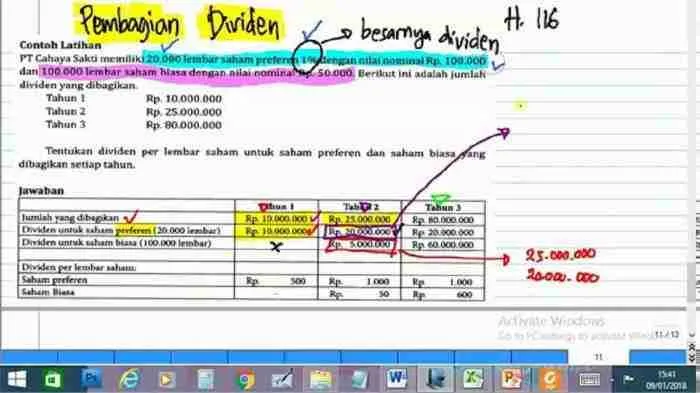 Pembagian Dividen
besarnya dividen
H. 116
Contoh Latihan
PT Cahaya Sakti memiliki 20.000 lembar saham preferen 1% dengan nilai nominal Rp. 100.000
dan 100.000 lembar saham biasa dengan nilai nominal Rp. 50.000. Berikut ini adalah jumlah
dividen yang dibagikan.
Tahun 1 Rp. 10.000.000
Tahun 2 Rp. 25.000.000
Tahun 3 Rp. 80.000.000
Tentukan dividen per lembar saham untuk saham preferen dan saham biasa yang
dibagikan setiap tahun.
Jawaban
Tahun 1 Tahun 2 Tahun 3
Jumlah yang dibagikan Rp. 10.000.000 Rp. 25.000.000 Rp. 80.000.000
Dividen untuk saham preferen (20.000 lembar) Rp. 10.000.000 Rp. 20.000.000 Rp. 20.000.000
Dividen untuk saham biasa (100.000 lembar) x Rp. 5.000.000 Rp. 60.000.000
25.000.000
20.000.000
Dividen per lembar saham:
Saham preferen Rp. 500 Rp. 1.000 Rp. 1.000
Saham Biasa - Rp. 50 Rp. 600
Activate Windows
Go to PC settings to activate Windows.
11 / 13
11
15:41
09/01/2018